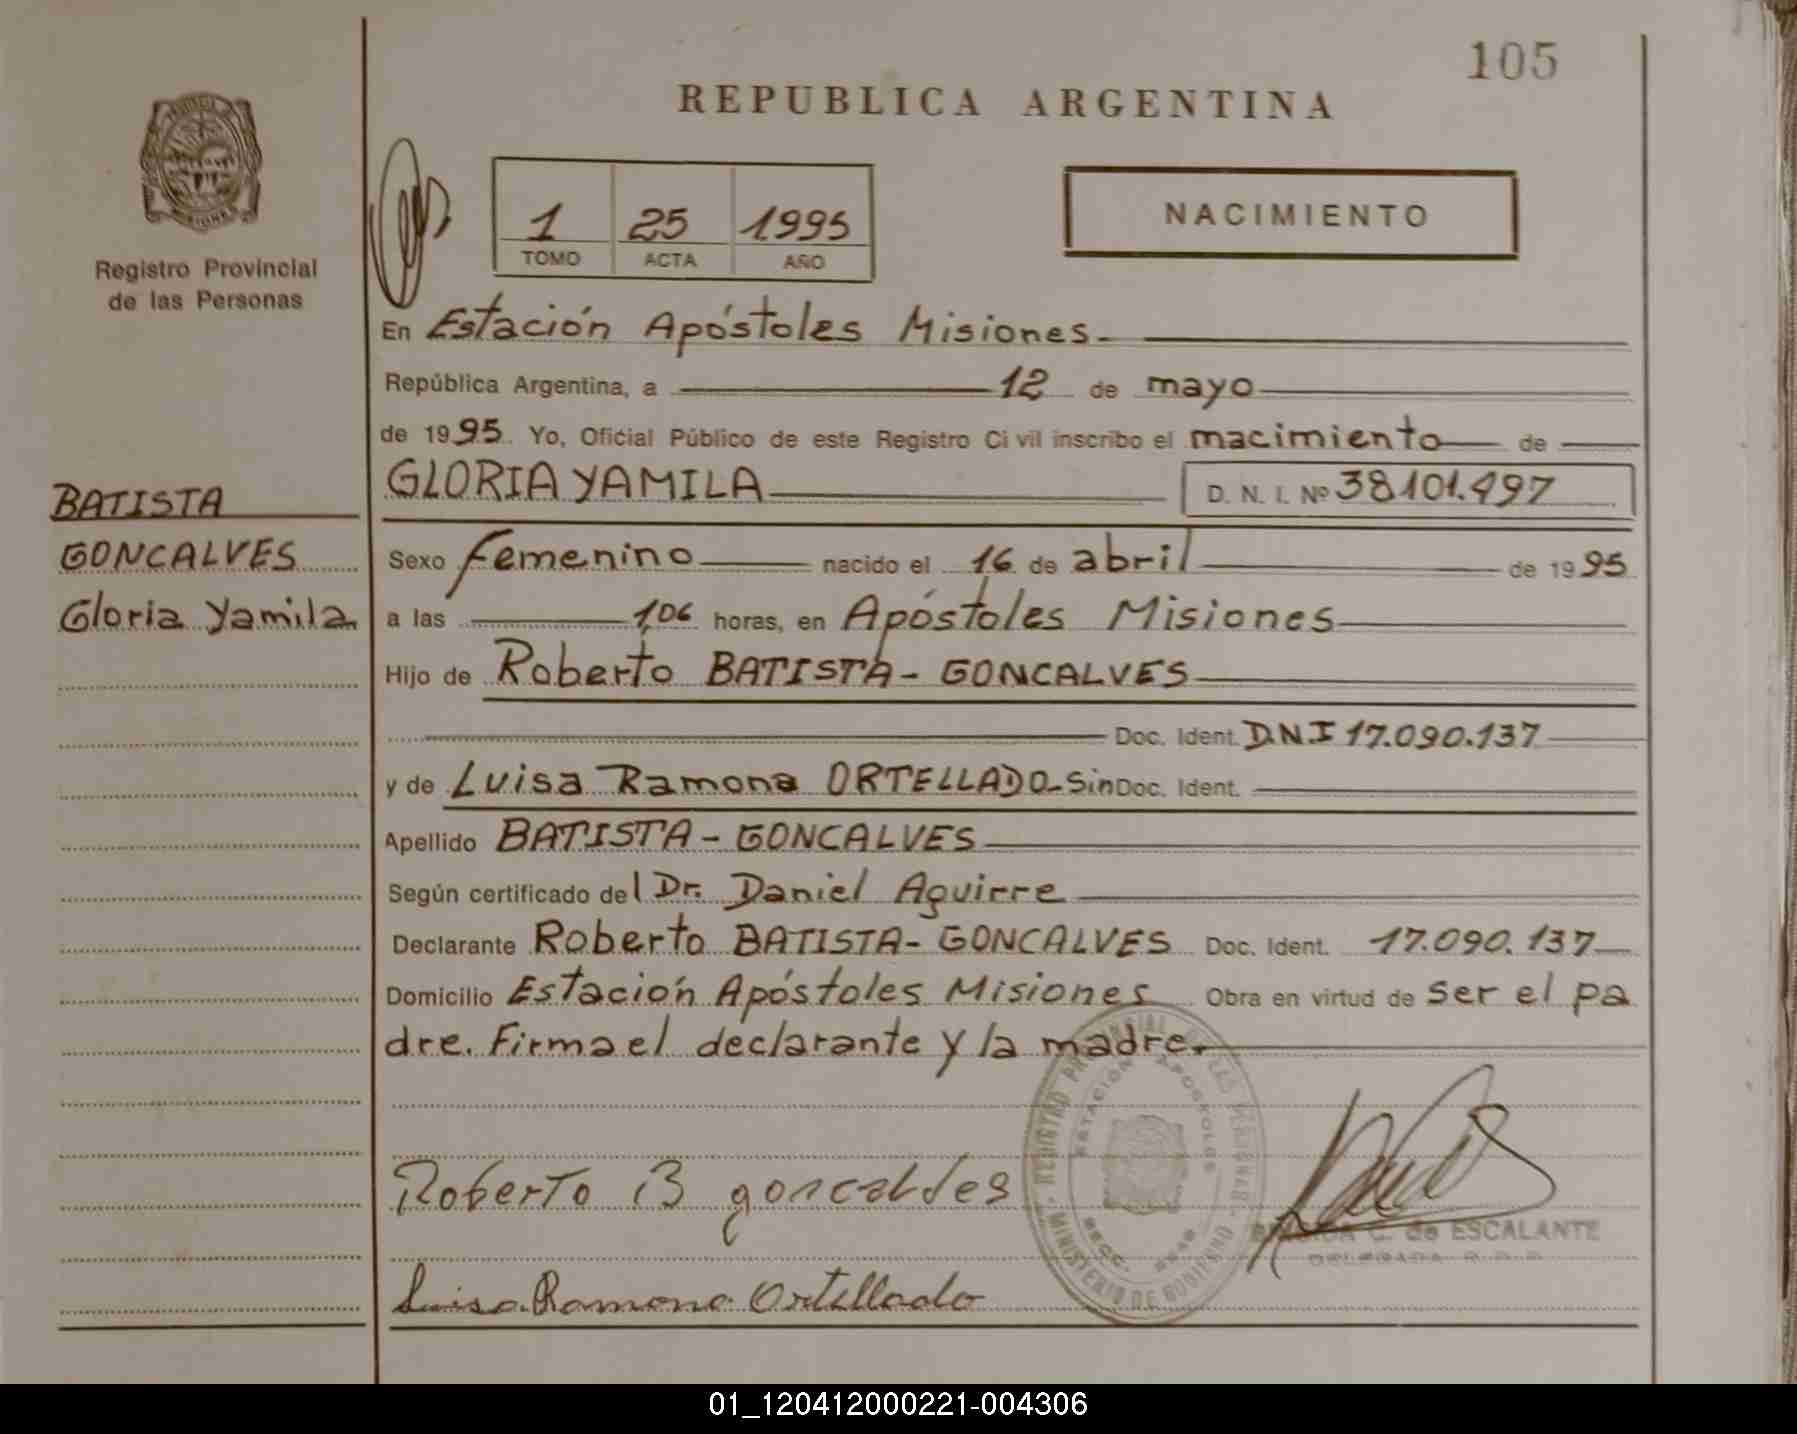 105
REPUBLICA ARGENTINA
Registro Provincial
de las Personas
1 25 1995
TOMO ACTA AÑO
NACIMIENTO
En Estación Apóstoles Misiones
República Argentina, a 12 de mayo
de 1995. Yo, Oficial Público de este Registro Civil inscribo el nacimiento de
GLORIA YAMILA D. N. I. Nº 38.101.497
BATISTA
GONCALVES
Gloria Yamila
Sexo Femenino nacido el 16 de abril de 1995
a las 1,06 horas, en Apóstoles Misiones
Hijo de Roberto BATISTA - GONCALVES
Doc. Ident. D.N.I 17.090.137
y de Luisa Ramona ORTELLADO - Sin Doc. Ident.
Apellido BATISTA - GONCALVES
Según certificado del Dr. Daniel Aguirre
Declarante Roberto BATISTA - GONCALVES Doc. Ident. 17.090.137
Domicilio Estación Apóstoles Misiones Obra en virtud de ser el pa
dre. Firma el declarante y la madre.
Roberto B goncalves
Luisa Ramona Ortellado
REGISTRO PROVINCIAL DE LAS PERSONAS
ESTACION APOSTOLES
MINISTERIO DE GOBIERNO
C. de ESCALANTE
DELEGADA R. P. P.
01_120412000221-004306